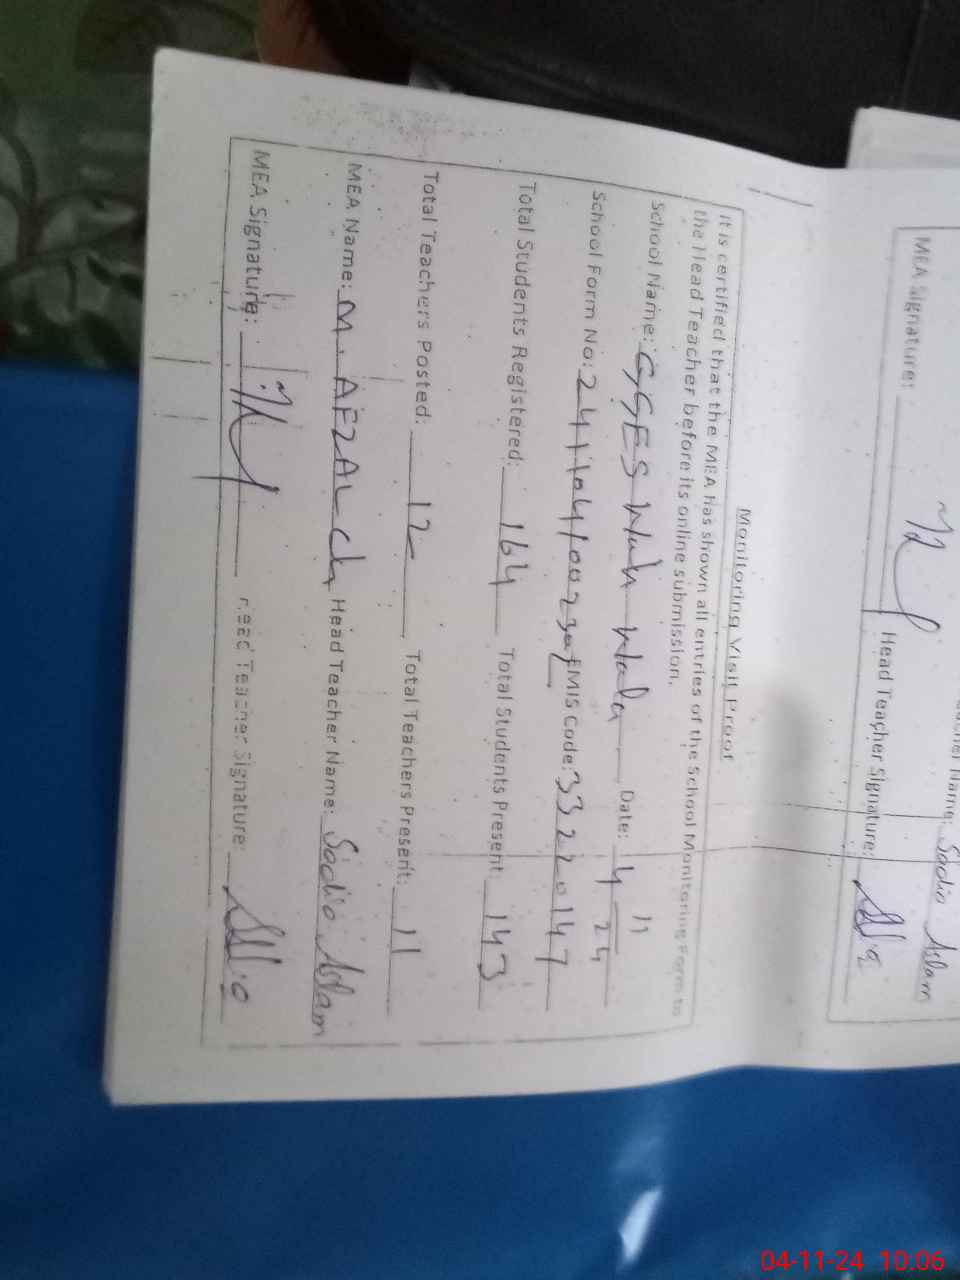 MEA Signature: Head Teacher Signature:
Sadia Aslam
Monitoring Visit Proof
It is certified that the MEA has shown all entries of the School Monitoring Form to
the Head Teacher before its online submission.
School Name: GGES Wah Wala Date: 4/11/24
School Form No: EMIS Code: 33220147
Total Students Registered: 164 Total Students Present: 143
Total Teachers Posted: 12 Total Teachers Present: 11
MEA Name: M. AFZAL Ch Head Teacher Name: Sadia Aslam
MEA Signature: Head Teacher Signature:
04-11-24 10:06